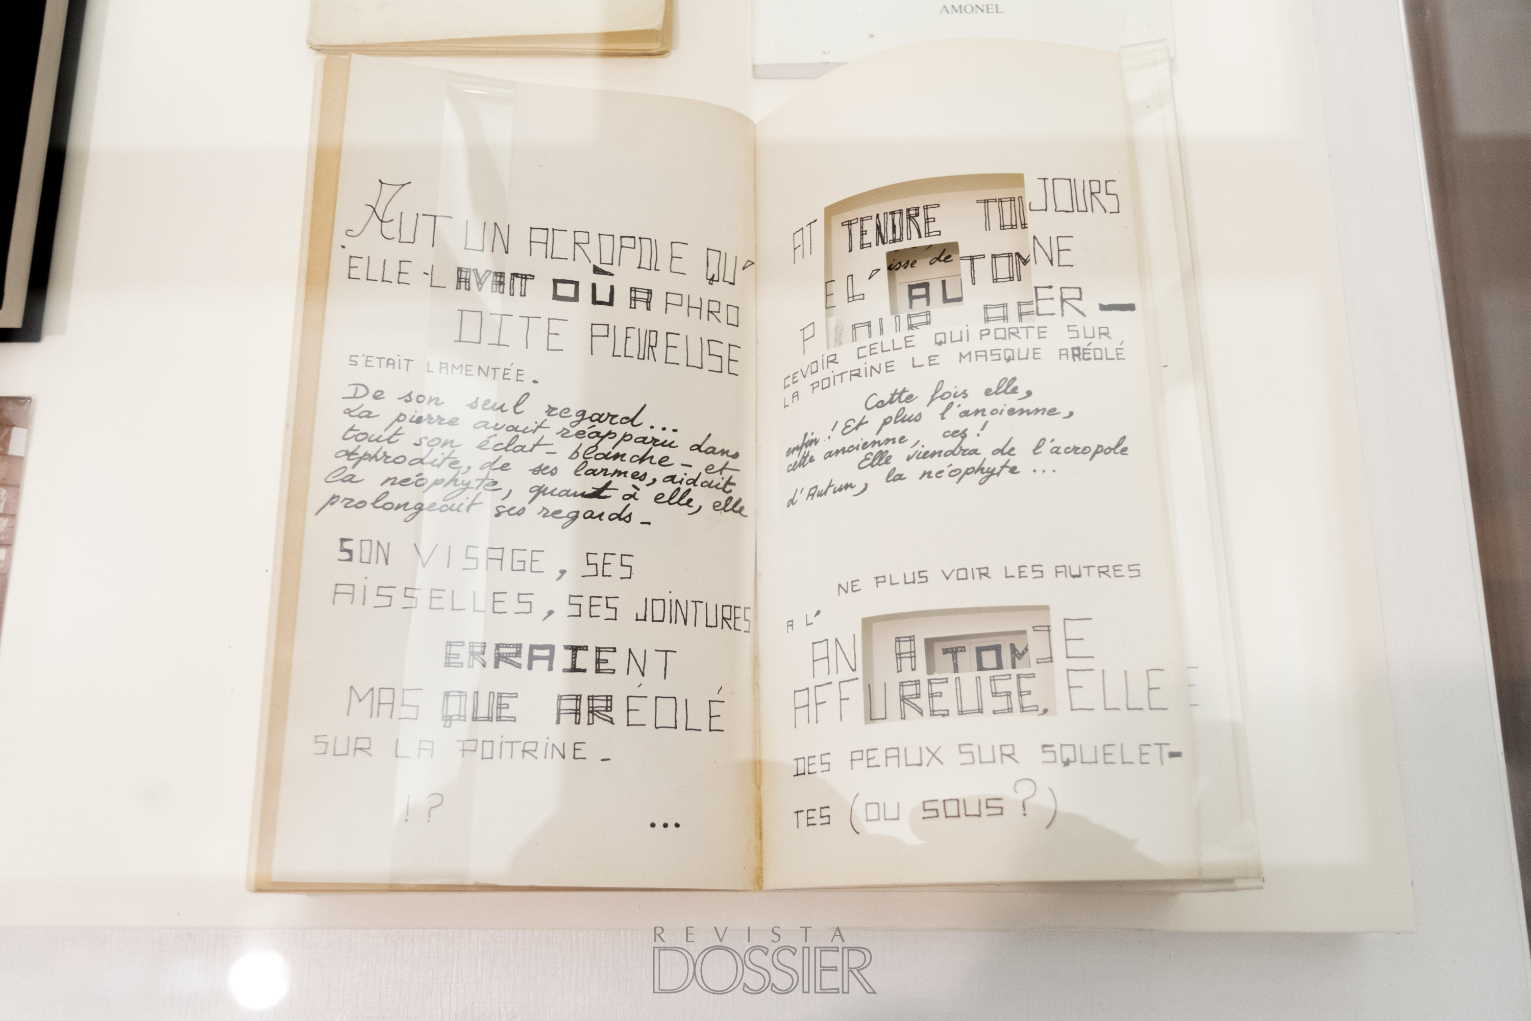 AMONEL
AUT UN ACROPOLE QU'
ELLE-L AVAIT OÙ APHRO
DITE PLEUREUSE
S'ETAIT LAMENTÉE.
De son seul regard...
La pierre avait réapparu dans
tout son éclat _ blanche _ et
aphrodite, de ses larmes, aidait
la néophyte, quant à elle, elle
prolongeait ses regards _
SON VISAGE, SES
AISSELLES, SES JOINTURES
ERRAIENT
MASQUE ARÉOLÉ
SUR LA POITRINE _
! ?
...
AT TENDRE TOUJOURS
EL' issé de TOMNE
AL
P APER —
CEVOIR CELLE QUI PORTE SUR
LA POITRINE LE MASQUE ARÉOLÉ
Cette fois elle,
enfin! Et plus l'ancienne,
cette ancienne, ces!
Elle viendra de l'acropole
d'Autun, la néophyte ...
NE PLUS VOIR LES AUTRES
A L'
AN A TOMIE
AFFUREUSE, ELLE
DES PEAUX SUR SQUELET-
TES (OU SOUS?)
REVISTA
DOSSIER